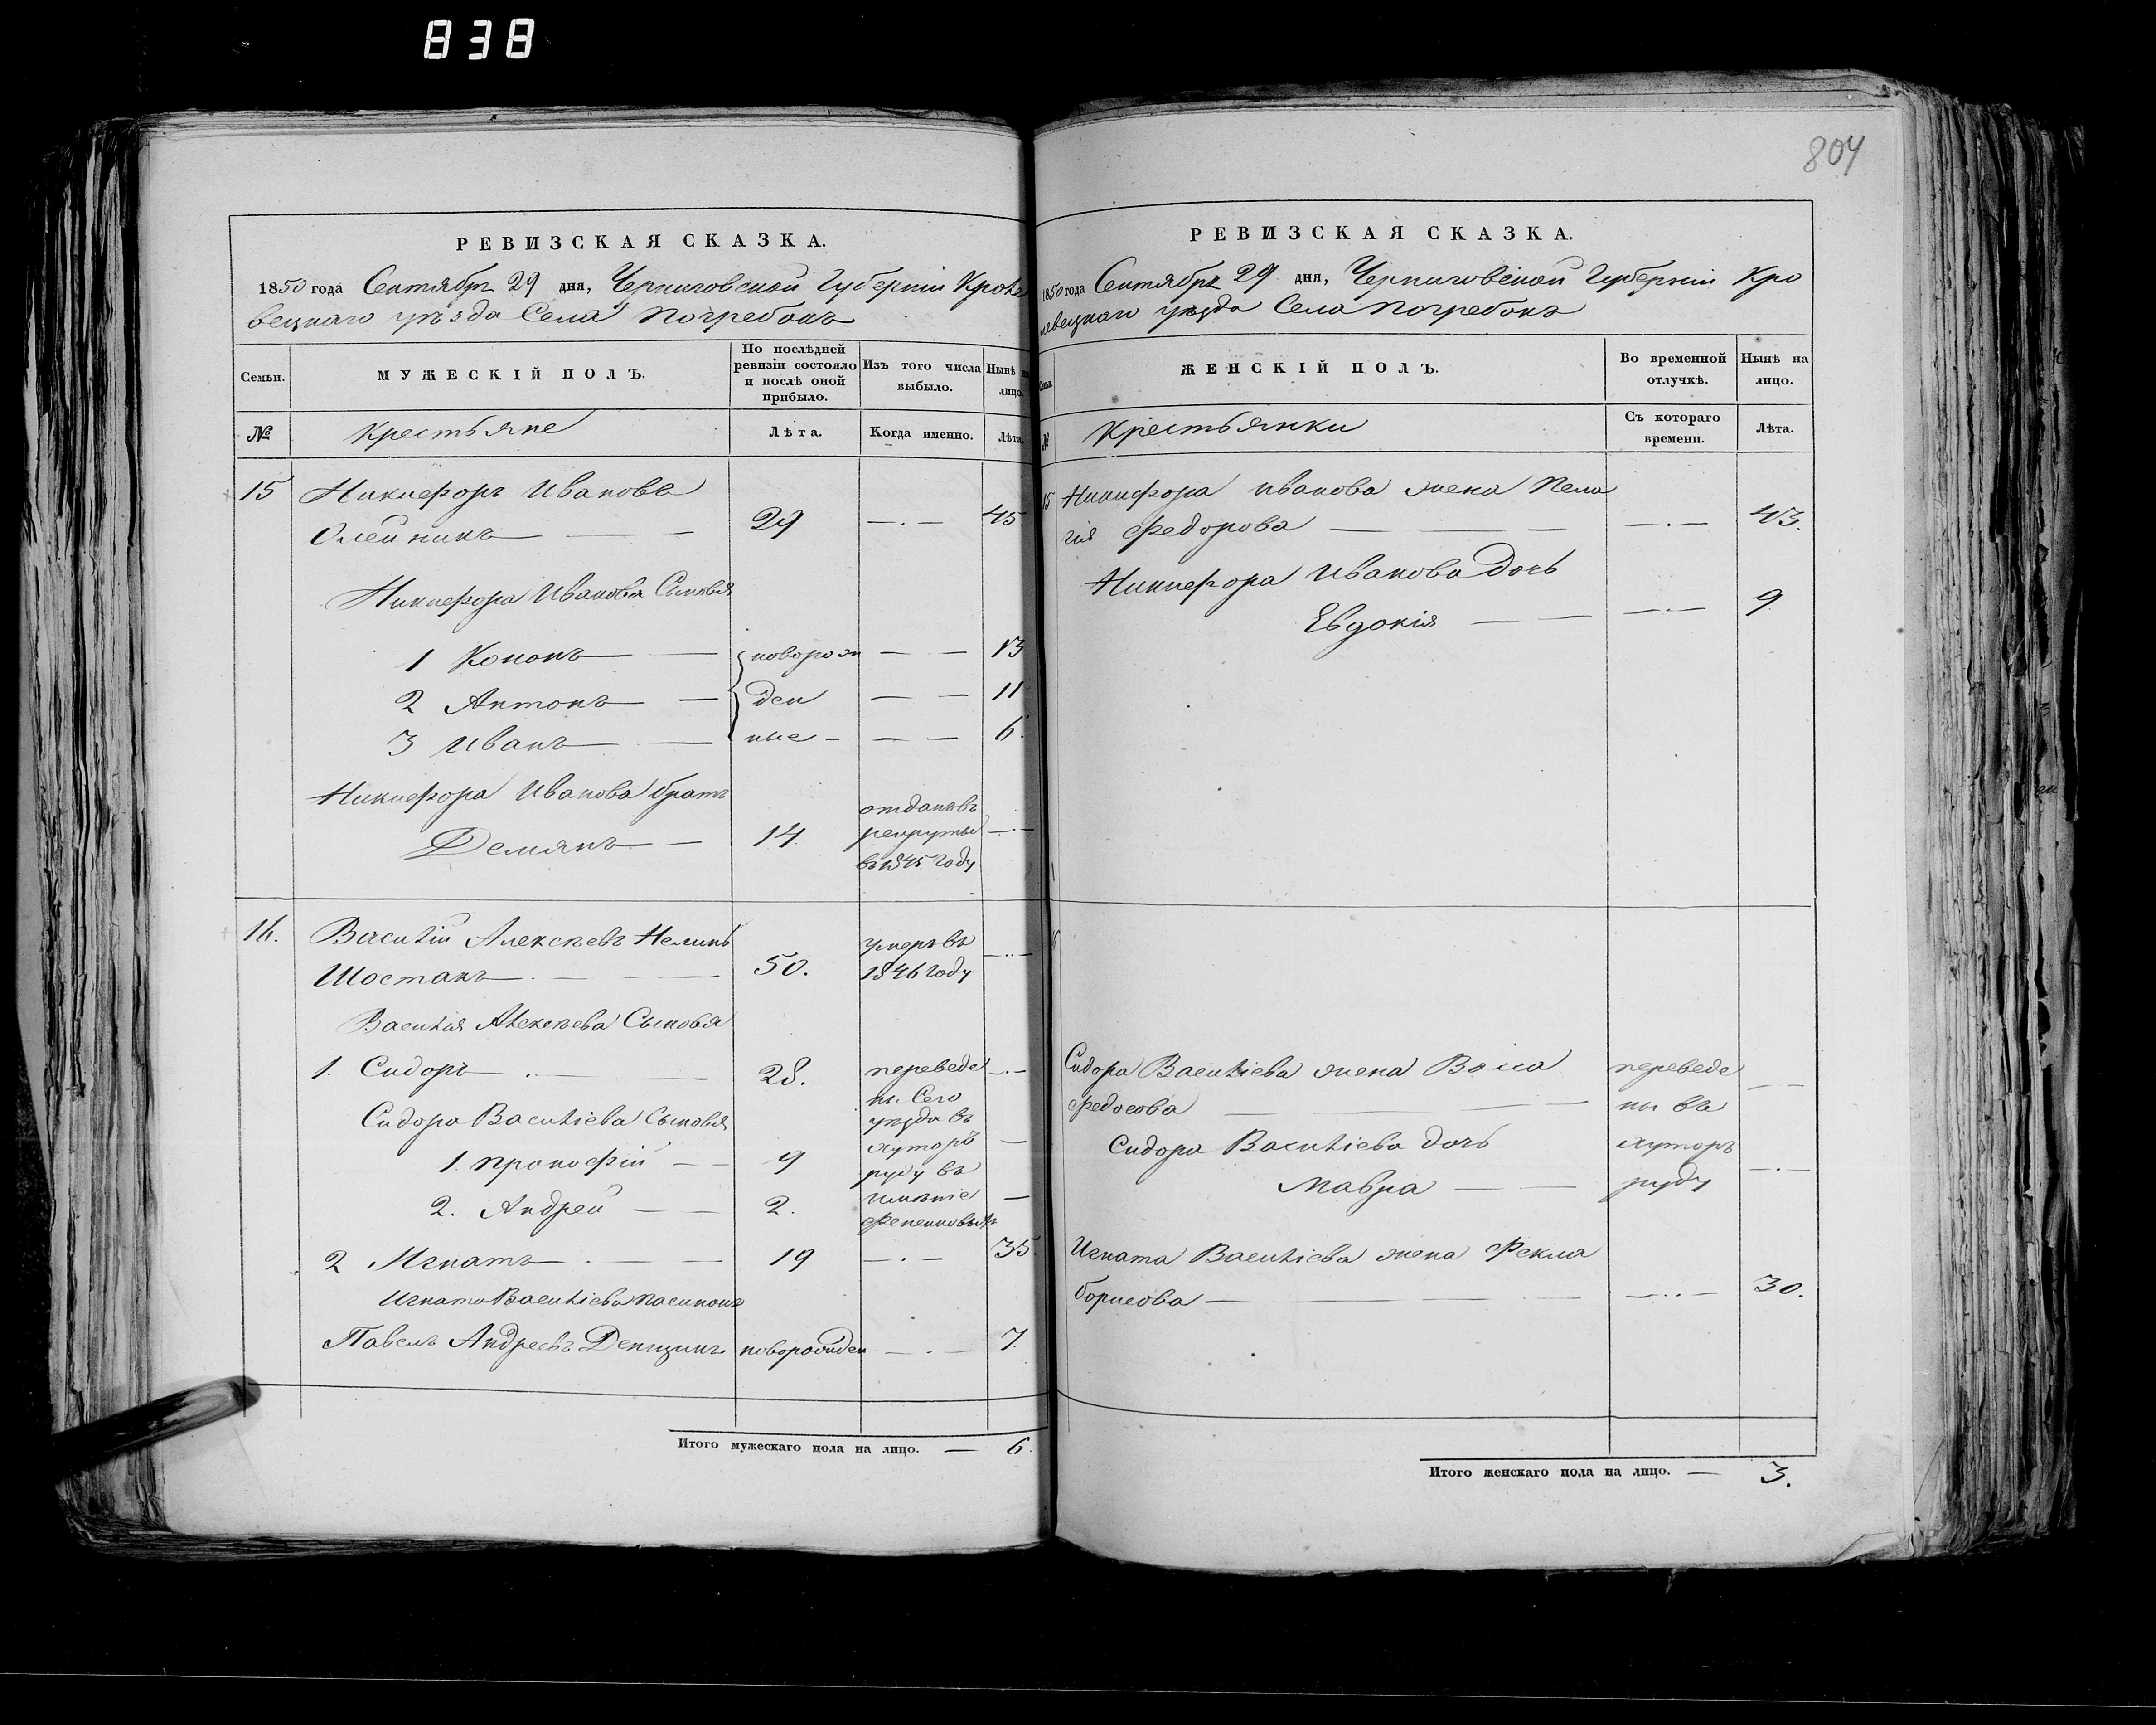 838
804
РЕВИЗСКАЯ СКАЗКА.
1850 года Сентября 29 дня, Черниговской Губернiи Кроле
вецкаго уѣзда Села Погребокъ
Семьи.
МУЖЕСКIЙ ПОЛЪ.
По послѣдней
ревизiи состояло
и послѣ оной
прибыло.
Изъ того числа
выбыло.
Нынѣ на
лицо.
№
Крестьяне
Лѣта.
Когда именно.
Лѣта.
15 Никифоръ Ивановъ
Олейникъ 29 45
Никифора Иванова Сыновья
1 Кононъ новорож 13
2 Антонъ ден 11
3 Иванъ ные 6.
Никифора Иванова братъ
Демянъ 14. отданъ въ
рекруты
въ 1845 году
16. Василiй Алексѣевъ
Шостакъ 50. умеръ въ
1846 году
Василiя Алексѣева Сыновья
1. Сидоръ 28. переведе
ны Сего
Сидора Василiева Сыновья уѣзда въ
хуторъ
1. Прокофiй 9 руду въ
2. Андрей 2. имѣнiе
2 Игнатъ 19 35.
Игната Василiева пасынокъ
Павелъ Андреевъ новорожден 7.
Итого мужескаго пола на лицо. — 6.
РЕВИЗСКАЯ СКАЗКА.
1850 года Сентября 29 дня, Черниговской Губернiи Кро
левецкаго уѣзда Села Погребокъ
Семьи.
ЖЕНСКIЙ ПОЛЪ.
Во временной
отлучкѣ.
Нынѣ на
лицо.
№
Крестьянки
Съ котораго
времени.
Лѣта.
15. Никифора Иванова жена Пела
гiя Федорова 43.
Никифора Иванова дочь
Евдокiя 9
Сидора Василiева жена Васса переведе
Федосова ны въ
Сидора Василiева дочь хуторъ
Мавра руду
Игната Василiева жена Фекла
Борисова 30.
Итого женскаго пола на лицо. — 3.